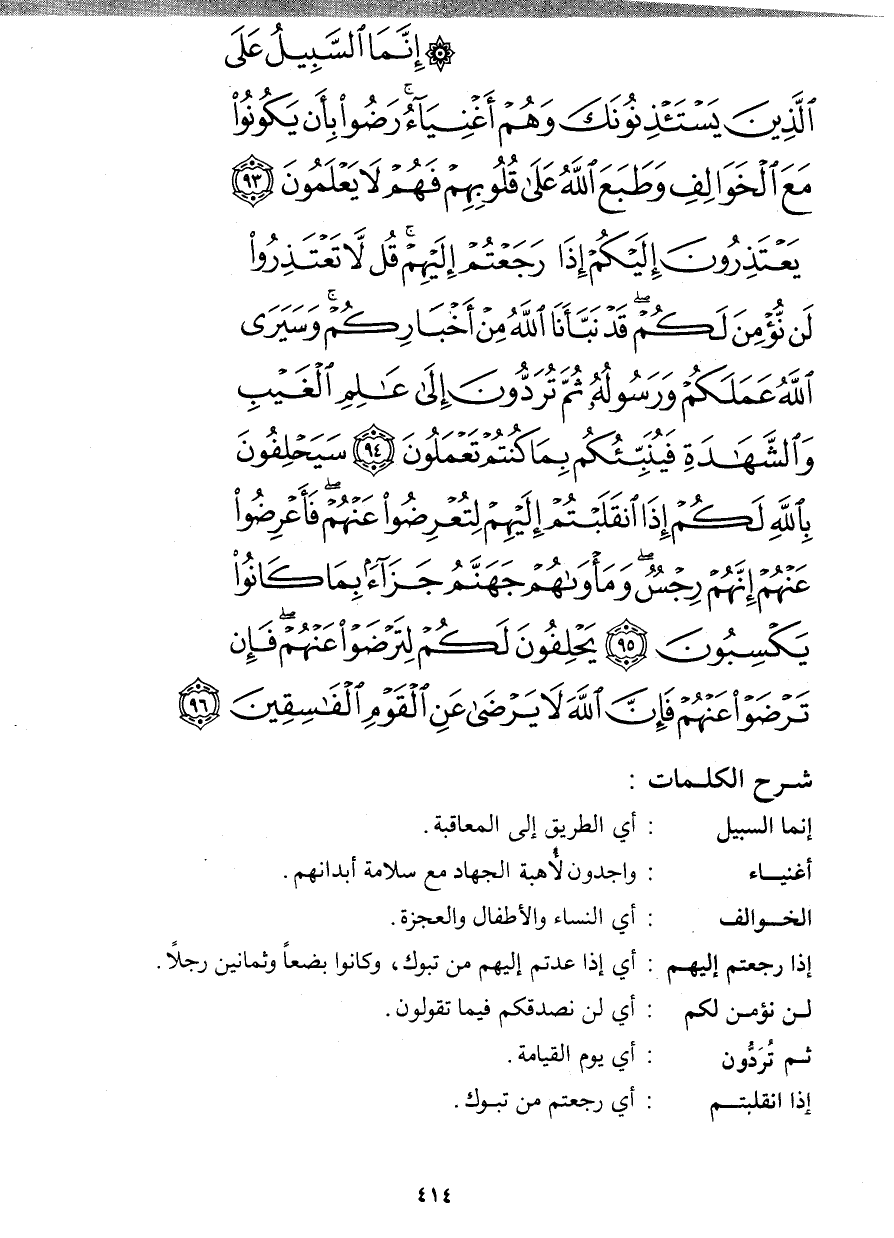 ۞ إِنَّمَا ٱلسَّبِيلُ عَلَى
ٱلَّذِينَ يَسْتَـْٔذِنُونَكَ وَهُمْ أَغْنِيَآءُ ۚ رَضُوا۟ بِأَن يَكُونُوا۟
مَعَ ٱلْخَوَالِفِ وَطَبَعَ ٱللَّهُ عَلَىٰ قُلُوبِهِمْ فَهُمْ لَا يَعْلَمُونَ ٩٣
يَعْتَذِرُونَ إِلَيْكُمْ إِذَا رَجَعْتُمْ إِلَيْهِمْ ۚ قُل لَّا تَعْتَذِرُوا۟
لَن نُّؤْمِنَ لَكُمْ ۖ قَدْ نَبَّأَنَا ٱللَّهُ مِنْ أَخْبَارِكُمْ ۚ وَسَيَرَى
ٱللَّهُ عَمَلَكُمْ وَرَسُولُهُۥ ثُمَّ تُرَدُّونَ إِلَىٰ عَـٰلِمِ ٱلْغَيْبِ
وَٱلشَّهَـٰدَةِ فَيُنَبِّئُكُم بِمَا كُنتُمْ تَعْمَلُونَ ٩٤ سَيَحْلِفُونَ
بِٱللَّهِ لَكُمْ إِذَا ٱنقَلَبْتُمْ إِلَيْهِمْ لِتُعْرِضُوا۟ عَنْهُمْ ۖ فَأَعْرِضُوا۟
عَنْهُمْ إِنَّهُمْ رِجْسٌ ۖ وَمَأْوَىٰهُمْ جَهَنَّمُ جَزَآءًۢ بِمَا كَانُوا۟
يَكْسِبُونَ ٩٥ يَحْلِفُونَ لَكُمْ لِتَرْضَوْا۟ عَنْهُمْ ۖ فَإِن
تَرْضَوْا۟ عَنْهُمْ فَإِنَّ ٱللَّهَ لَا يَرْضَىٰ عَنِ ٱلْقَوْمِ ٱلْفَـٰسِقِينَ ٩٦
شرح الكلمات :
إنما السبيل : أي الطريق إلى المعاقبة .
أغنياء : واجدون لأُهبة الجهاد مع سلامة أبدانهم .
الخوالف : أي النساء والأطفال والعجزة .
إذا رجعتم إليهم : أي إذا عدتم إليهم من تبوك، وكانوا بضعاً وثمانين رجلاً .
لن نؤمن لكم : أي لن نصدقكم فيما تقولون .
ثم تُرَدُّون : أي يوم القيامة .
إذا انقلبتم : أي رجعتم من تبوك .
٤١٤